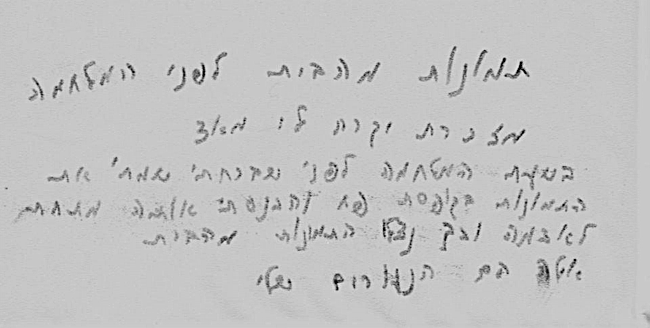 תמונות מהבית לפני המלחמה
מזכרת יקרה לי מאד
בשעת המלחמה לפני שברחתי שמתי את
התמונות בקופסת פח והכנסתי אותה מתחת
לאדמה וכך נצלו התמונות מהבית
אלה הם הנעורים שלי